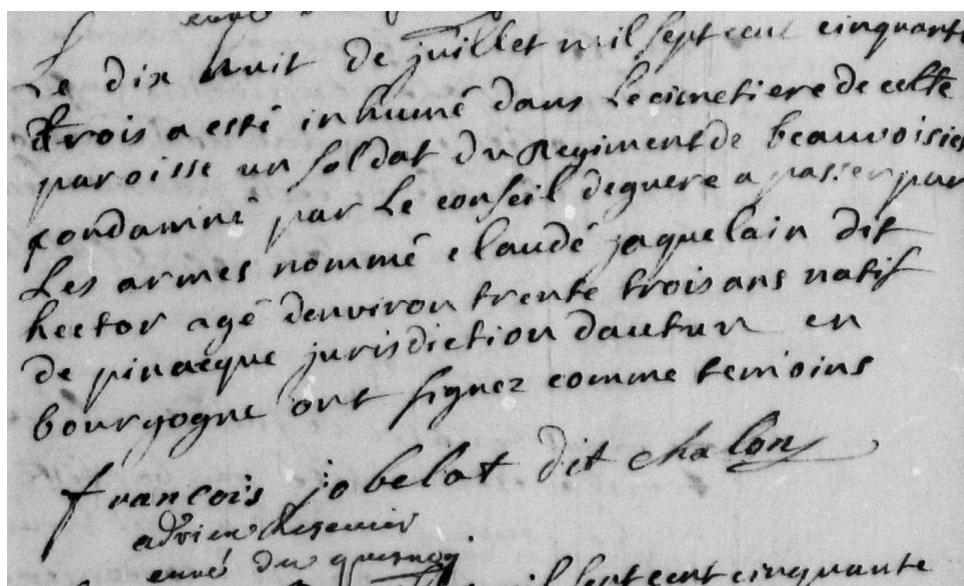 curé du
Le dix huit de juillet mil sept cent cinquante
trois a esté inhumé dans le cimetiere de cette
paroisse un soldat du Regiment de beauvoisies
condamné par le conseil de guere a passer par
Les armes nommé claudé jaquelain dit
hector agé denviron trente trois ans natif
de pinacque jurisdiction dautun en
bourgogne ont signez comme temoins
françois jobelat dit chalon
adrien
curé du quesnoy
mil sept cent cinquante